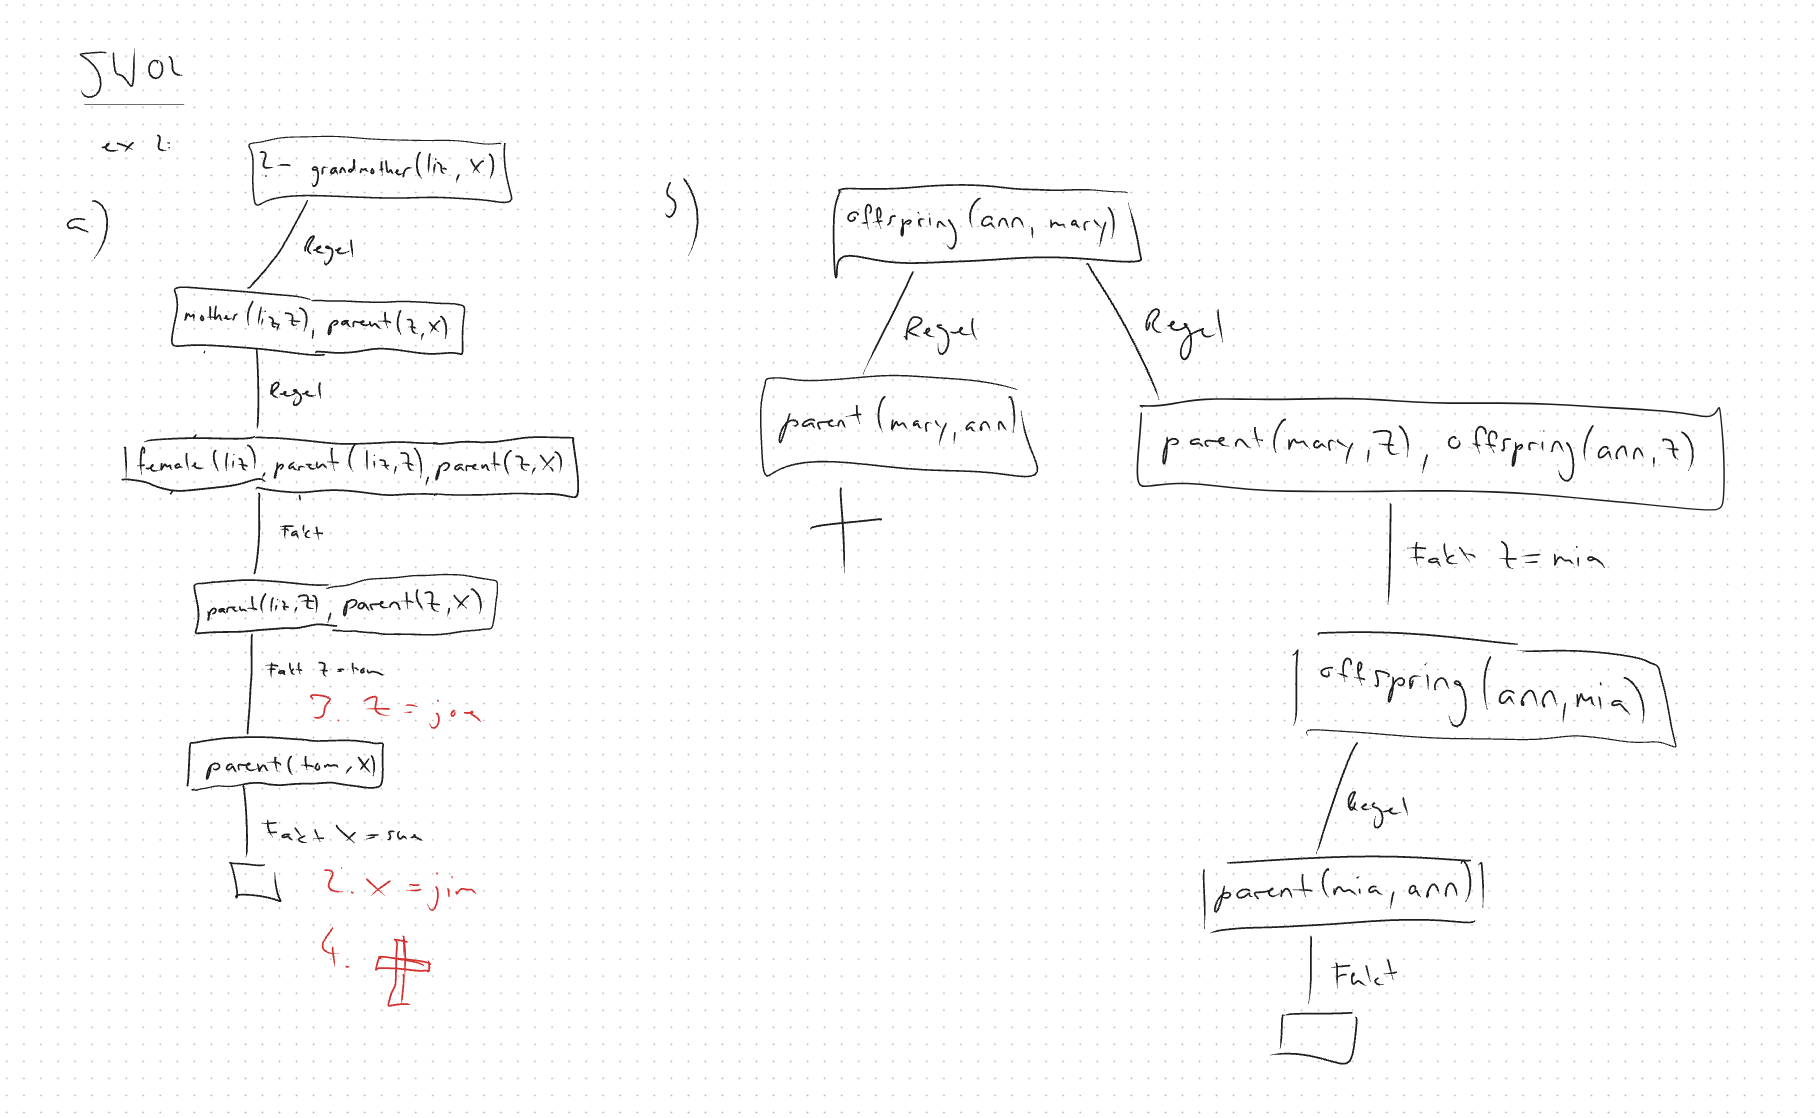 SW02
ex 2:
a)
?- grandmother(liz, X)
Regel
mother(liz,Z), parent(Z,X)
Regel
female(liz), parent(liz,Z), parent(Z,X)
Fakt
parent(liz,Z), parent(Z,X)
Fakt Z = tom
3. Z = joe
parent(tom, X)
Fakt X = sue
2. X = jim
4.
b)
offspring(ann, mary)
Regel
Regel
parent(mary, ann)
parent(mary, Z), offspring(ann, Z)
Fakt Z = mia
offspring(ann, mia)
Regel
parent(mia, ann)
Fakt